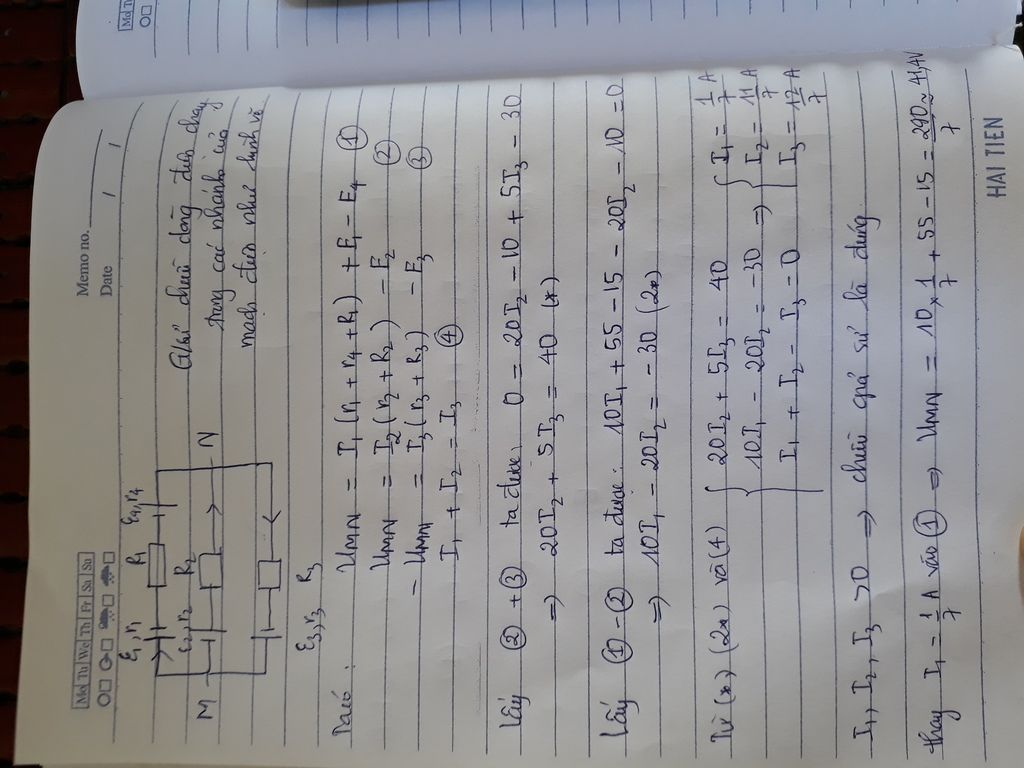 Memo no.
Date / /
Mo Tu We Th Fr Sa Su
E₁, r₁ R₁ E₄, r₄
E₂, r₂ R₂
M N
E₃, r₃ R₃
G/sử chiều dòng điện chạy
trong các nhánh của
mạch điện như hình vẽ
Ta có:
U_MN = I₁(r₁ + r₄ + R₁) + E₁ - E₄ ①
U_MN = I₂(r₂ + R₂) - E₂ ②
- U_MN = I₃(r₃ + R₃) - E₃ ③
I₁ + I₂ = I₃ ④
Lấy ② + ③ ta được: 0 = 20I₂ - 10 + 5I₃ - 30
=> 20I₂ + 5I₃ = 40 (*)
Lấy ① - ② ta được: 10I₁ + 55 - 15 - 20I₂ - 10 = 0
=> 10I₁ - 20I₂ = -30 (2*)
Từ (*) (2*) và (4) { 20I₂ + 5I₃ = 40 { I₁ = 1/7 A
10I₁ - 20I₂ = -30 => I₂ = 11/7 A
I₁ + I₂ - I₃ = 0 I₃ = 12/7 A
I₁, I₂, I₃ > 0 => chiều giả sử là đúng
thay I₁ = 1/7 A vào ① => U_MN = 10 × 1/7 + 55 - 15 = 290/7 ≈ 41,4V
HAI TIEN